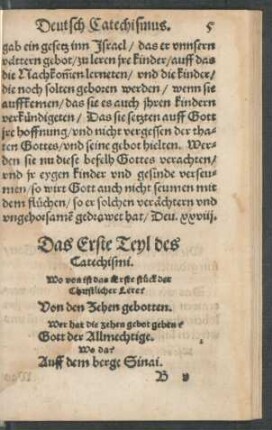 Deutsch Catechismus. 5
gab ein gesetz inn Israel / das er vnnsern
vettern gebot / zu leren jre kinder / auff das
die Nachkom̃en lerneten / vnd die kinder /
die noch solten geboren werden / wenn sie
auffkemen / das sie es auch jhren kindern
verkündigeten / Das sie setzten auff Gott
jre hoffnung / vnd nicht vergessen der tha-
ten Gottes / vnd seine gebot hielten. Wer-
den sie nu diese befelh Gottes verachten /
vnd jr eygen kinder vnd gesinde verseu-
men / so wirt Gott auch nicht seumen mit
dem flüchen / so er solchen verächtern vnd
vngehorsamẽ gedrawet hat / Deu. xxviij.
Das Erste Teyl des
Catechismi.
Wo von ist das Erste stück der
Christlicher Lere?
Von den Zehen gebotten.
Wer hat die zehen gebot geben?
Gott der Allmechtige.
Wo da?
Auff dem berge Sinai.
B v